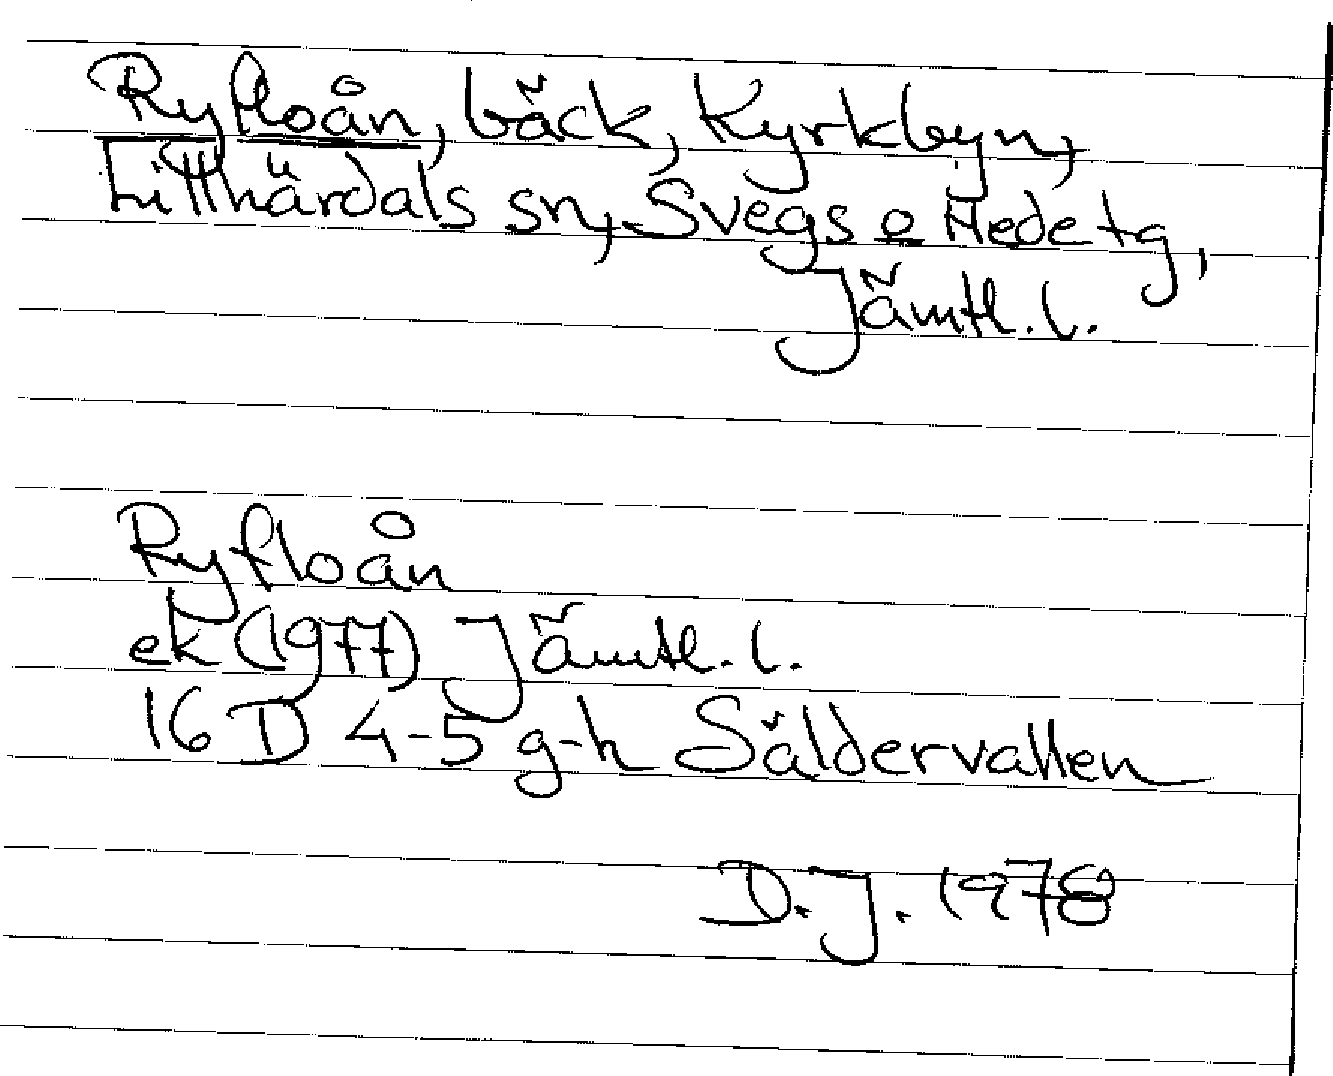 Ryfloån, bäck, Kyrkbyn,
Lillhärdals sn, Svegs o Hede tg,
Jämtl. l.
Ryfloån
ek (1977) Jämtl. l.
16 D 4-5 g-h Säldervallen
D.J. 1978